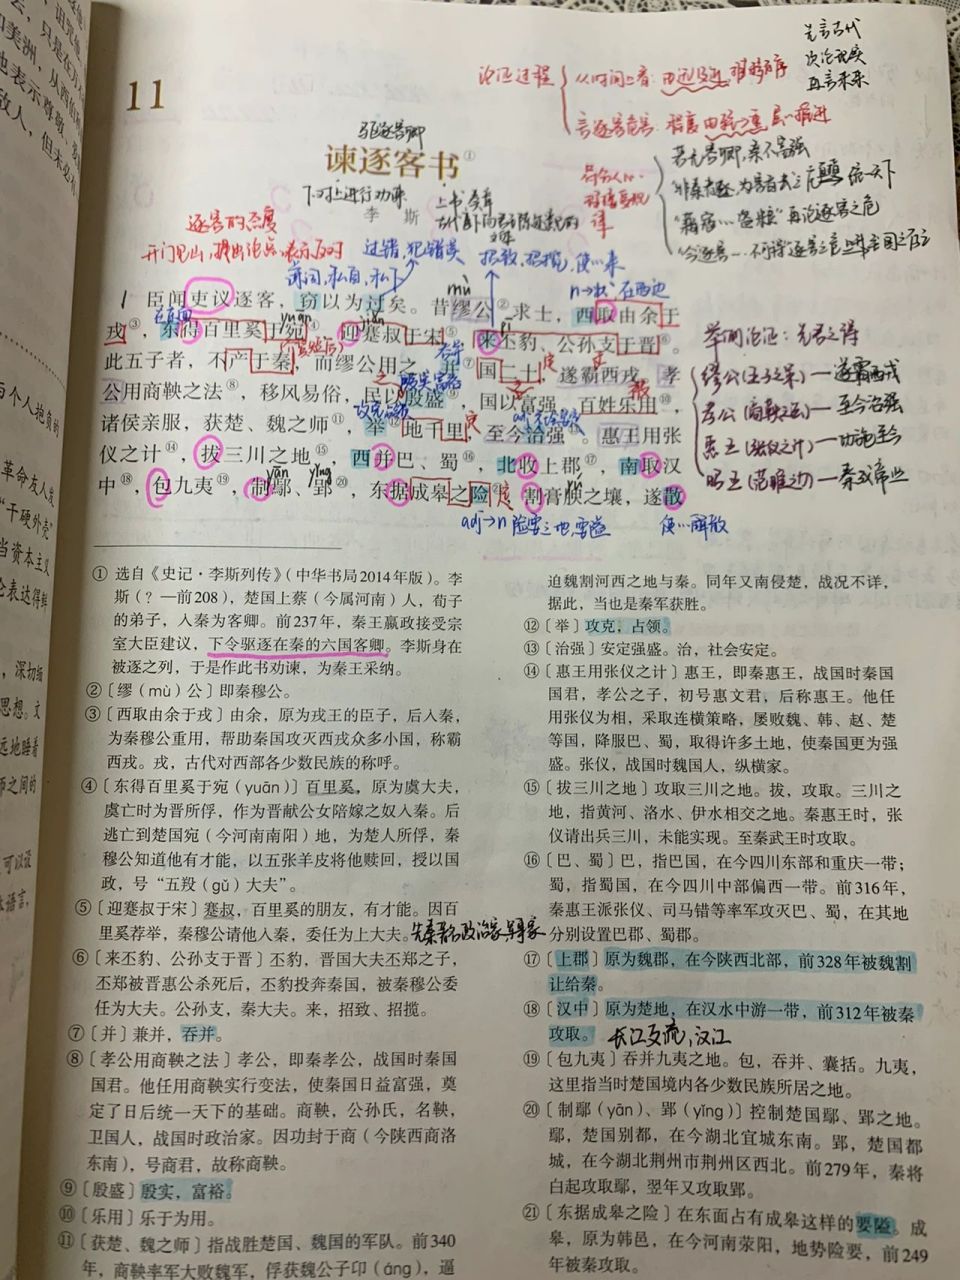 先言古代
次论现实
再言未来
论证过程
从时间上看：由远及近
言逐客危害：程度由轻到重 层层推进
11
驱逐客卿
谏逐客书①
下对上进行劝谏
李 斯
若无客卿，秦不富强
今逐客
逐客的态度
开门见山，提出论点，表示反对
过错，犯错误
招致，招揽，使…来
mù
n→状 在西边
臣闻吏议逐客，窃以为过矣。昔缪公②求士，西取由余于
戎③，东得百里奚于宛④，迎蹇叔于宋⑤，来丕豹、公孙支于晋⑥。
此五子者，不产于秦，而缪公用之，并⑦国二十，遂霸西戎。孝
公用商鞅之法⑧，移风易俗，民以殷盛⑨，国以富强，百姓乐用⑩，
诸侯亲服，获楚、魏之师⑪，举⑫地千里，至今治强⑬。惠王用张
仪之计⑭，拔三川之地⑮，西并巴、蜀⑯，北收上郡⑰，南取汉
中⑱，包九夷⑲，制鄢、郢⑳，东据成皋之险㉑，割膏腴之壤，遂散
yuān
yān
yǐng
adj→n 险要之地，要隘
使…解散
举例论证：先君之得
缪公（五子之来）—遂霸西戎
孝公（商鞅之法）—至今治强
惠王（张仪之计）—功施至今
昭王（范雎之功）—秦成帝业
① 选自《史记·李斯列传》（中华书局2014年版）。李
斯（？—前208），楚国上蔡（今属河南）人，荀子
的弟子，入秦为客卿。前237年，秦王嬴政接受宗
室大臣建议，下令驱逐在秦的六国客卿。李斯身在
被逐之列，于是作此书劝谏，为秦王采纳。
②〔缪（mù）公〕即秦穆公。
③〔西取由余于戎〕由余，原为戎王的臣子，后入秦，
为秦穆公重用，帮助秦国攻灭西戎众多小国，称霸
西戎。戎，古代对西部各少数民族的称呼。
④〔东得百里奚于宛（yuān）〕百里奚，原为虞大夫，
虞亡时为晋所俘，作为晋献公女陪嫁之奴入秦。后
逃亡到楚国宛（今河南南阳）地，为楚人所俘，秦
穆公知道他有才能，以五张羊皮将他赎回，授以国
政，号“五羖（gǔ）大夫”。
⑤〔迎蹇叔于宋〕蹇叔，百里奚的朋友，有才能。因百
里奚荐举，秦穆公请他入秦，委任为上大夫。
先秦著名政治家、军事家
⑥〔来丕豹、公孙支于晋〕丕豹，晋国大夫丕郑之子，
丕郑被晋惠公杀死后，丕豹投奔秦国，被秦穆公委
任为大夫。公孙支，秦大夫。来，招致、招揽。
⑦〔并〕兼并，吞并。
⑧〔孝公用商鞅之法〕孝公，即秦孝公，战国时秦国
国君。他任用商鞅实行变法，使秦国日益富强，奠
定了日后统一天下的基础。商鞅，公孙氏，名鞅，
卫国人，战国时政治家。因功封于商（今陕西商洛
东南），号商君，故称商鞅。
⑨〔殷盛〕殷实，富裕。
⑩〔乐用〕乐于为用。
⑪〔获楚、魏之师〕指战胜楚国、魏国的军队。前340
年，商鞅率军大败魏军，俘获魏公子卬（áng），逼
迫魏割河西之地与秦。同年又南侵楚，战况不详，
据此，当也是秦军获胜。
⑫〔举〕攻克，占领。
⑬〔治强〕安定强盛。治，社会安定。
⑭〔惠王用张仪之计〕惠王，即秦惠王，战国时秦国
国君，孝公之子，初号惠文君，后称惠王。他任
用张仪为相，采取连横策略，屡败魏、韩、赵、楚
等国，降服巴、蜀，取得许多土地，使秦国更为强
盛。张仪，战国时魏国人，纵横家。
⑮〔拔三川之地〕攻取三川之地。拔，攻取。三川之
地，指黄河、洛水、伊水相交之地。秦惠王时，张
仪请出兵三川，未能实现。至秦武王时攻取。
⑯〔巴、蜀〕巴，指巴国，在今四川东部和重庆一带；
蜀，指蜀国，在今四川中部偏西一带。前316年，
秦惠王派张仪、司马错等率军攻灭巴、蜀，在其地
分别设置巴郡、蜀郡。
⑰〔上郡〕原为魏郡，在今陕西北部，前328年被魏割
让给秦。
⑱〔汉中〕原为楚地，在汉水中游一带，前312年被秦
攻取。
长江支流，汉江
⑲〔包九夷〕吞并九夷之地。包，吞并、囊括。九夷，
这里指当时楚国境内各少数民族所居之地。
⑳〔制鄢（yān）、郢（yǐng）〕控制楚国鄢、郢之地。
鄢，楚国别都，在今湖北宜城东南。郢，楚国都
城，在今湖北荆州市荆州区西北。前279年，秦将
白起攻取鄢，翌年又攻取郢。
㉑〔东据成皋之险〕在东面占有成皋这样的要隘。成
皋，原为韩邑，在今河南荥阳，地势险要，前249
年被秦攻取。